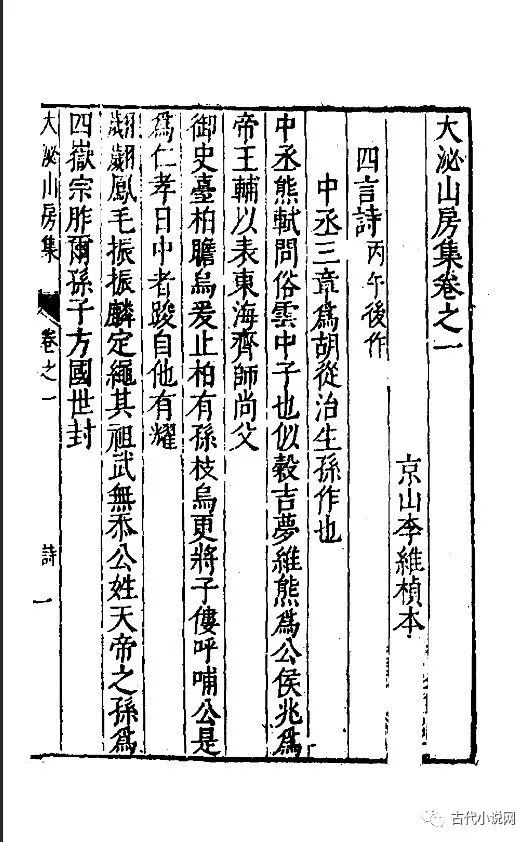 大泌山房集卷之一
京山李維楨本
四言詩丙午後作
中丞三章爲胡從治生孫作也
中丞熊軾問俗雲中子也似穀吉夢維熊爲公侯兆爲
帝王輔以表東海齊師尚父
御史臺柏瞻烏爰止柏有孫枝烏更將子僂呼哺公是
爲仁孝日中者踆自他有耀
翽翽鳳毛振振麟定繩其祖武無忝公姓天帝之孫爲
四嶽宗胙爾孫子方國世封
大泌山房集 卷之一 詩 一
古代小说网